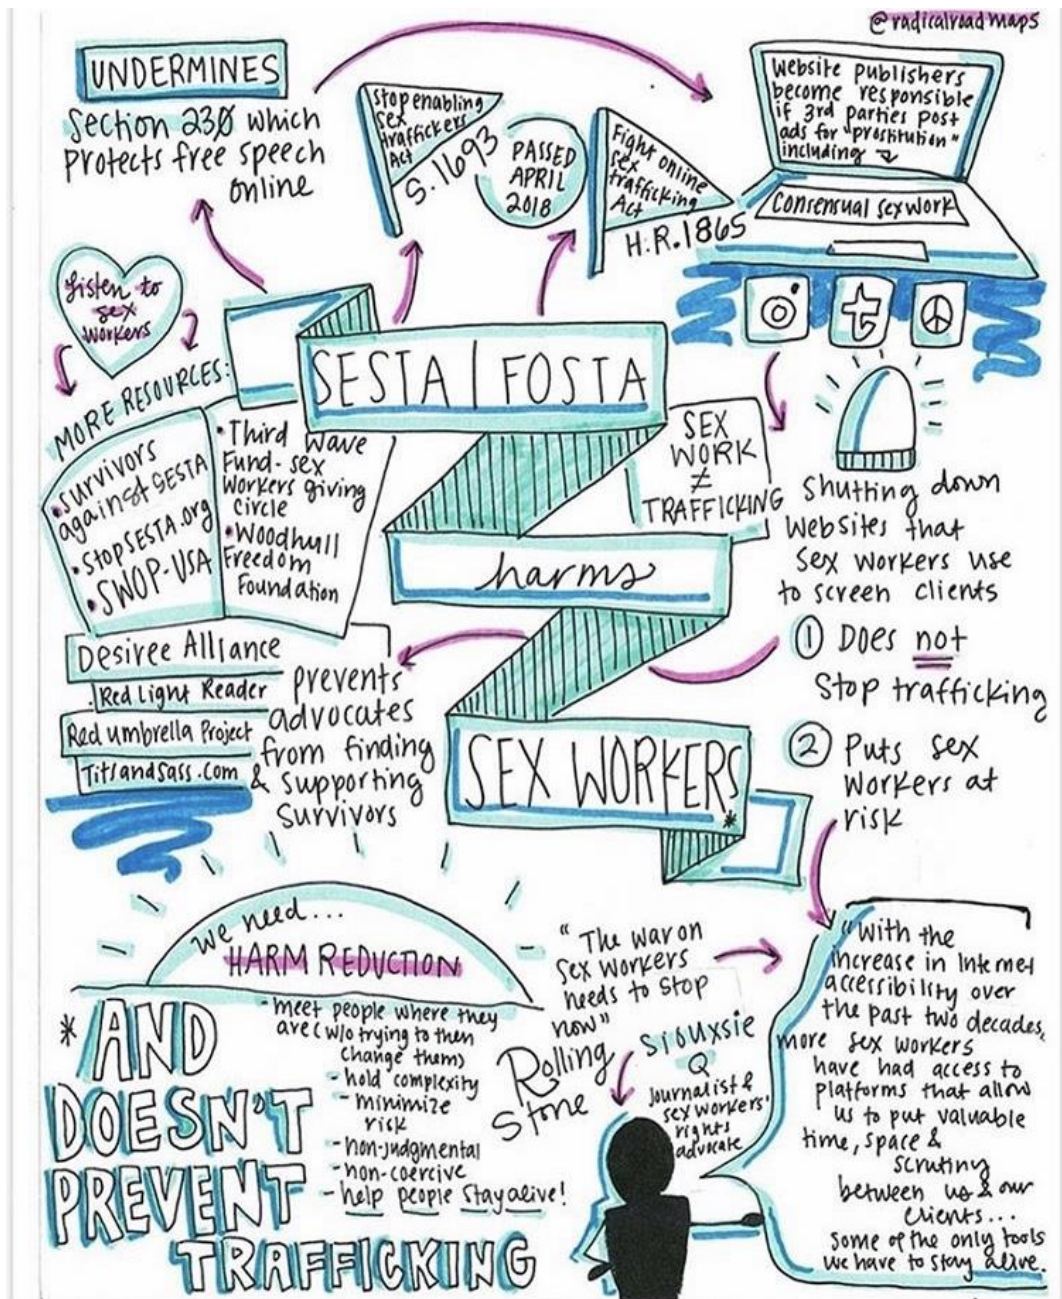 @radicalroadmaps
UNDERMINES
Section 230 which
protects free speech
online
Stop enabling
sex
traffickers
Act
S.1693
PASSED
APRIL
2018
Fight online
sex
trafficking
Act
H.R.1865
Website publishers
become responsible
if 3rd parties post
ads for "prostitution"
including
Consensual sex work
t
listen to
sex
workers
MORE RESOURCES:
• survivors
against SESTA
• StopSESTA.org
• SWOP-USA
• Third Wave
Fund-sex
Workers giving
circle
• Woodhull
Freedom
Foundation
Desiree Alliance
Red Light Reader
Red umbrella Project
TitsandSass.com
SESTA | FOSTA
harms
SEX WORKERS
*
SEX
WORK
≠
TRAFFICKING
Shutting down
websites that
sex workers use
to screen clients
① Does not
Stop trafficking
② Puts sex
workers at
risk
prevents
advocates
from finding
& supporting
survivors
we need...
HARM REDUCTION
- meet people where they
are (w/o trying to then
change them)
- hold complexity
- minimize
risk
- non-judgmental
- non-coercive
- help people stay alive!
* AND
DOESN'T
PREVENT
TRAFFICKING
"The war on
sex workers
needs to stop
now"
Rolling
Stone
Siouxsie
Q
Journalist &
sex workers'
rights
advocate
"With the
increase in Internet
accessibility over
the past two decades,
more sex workers
have had access to
platforms that allow
us to put valuable
time, space &
scrutiny
between us & our
clients...
Some of the only tools
we have to stay alive.